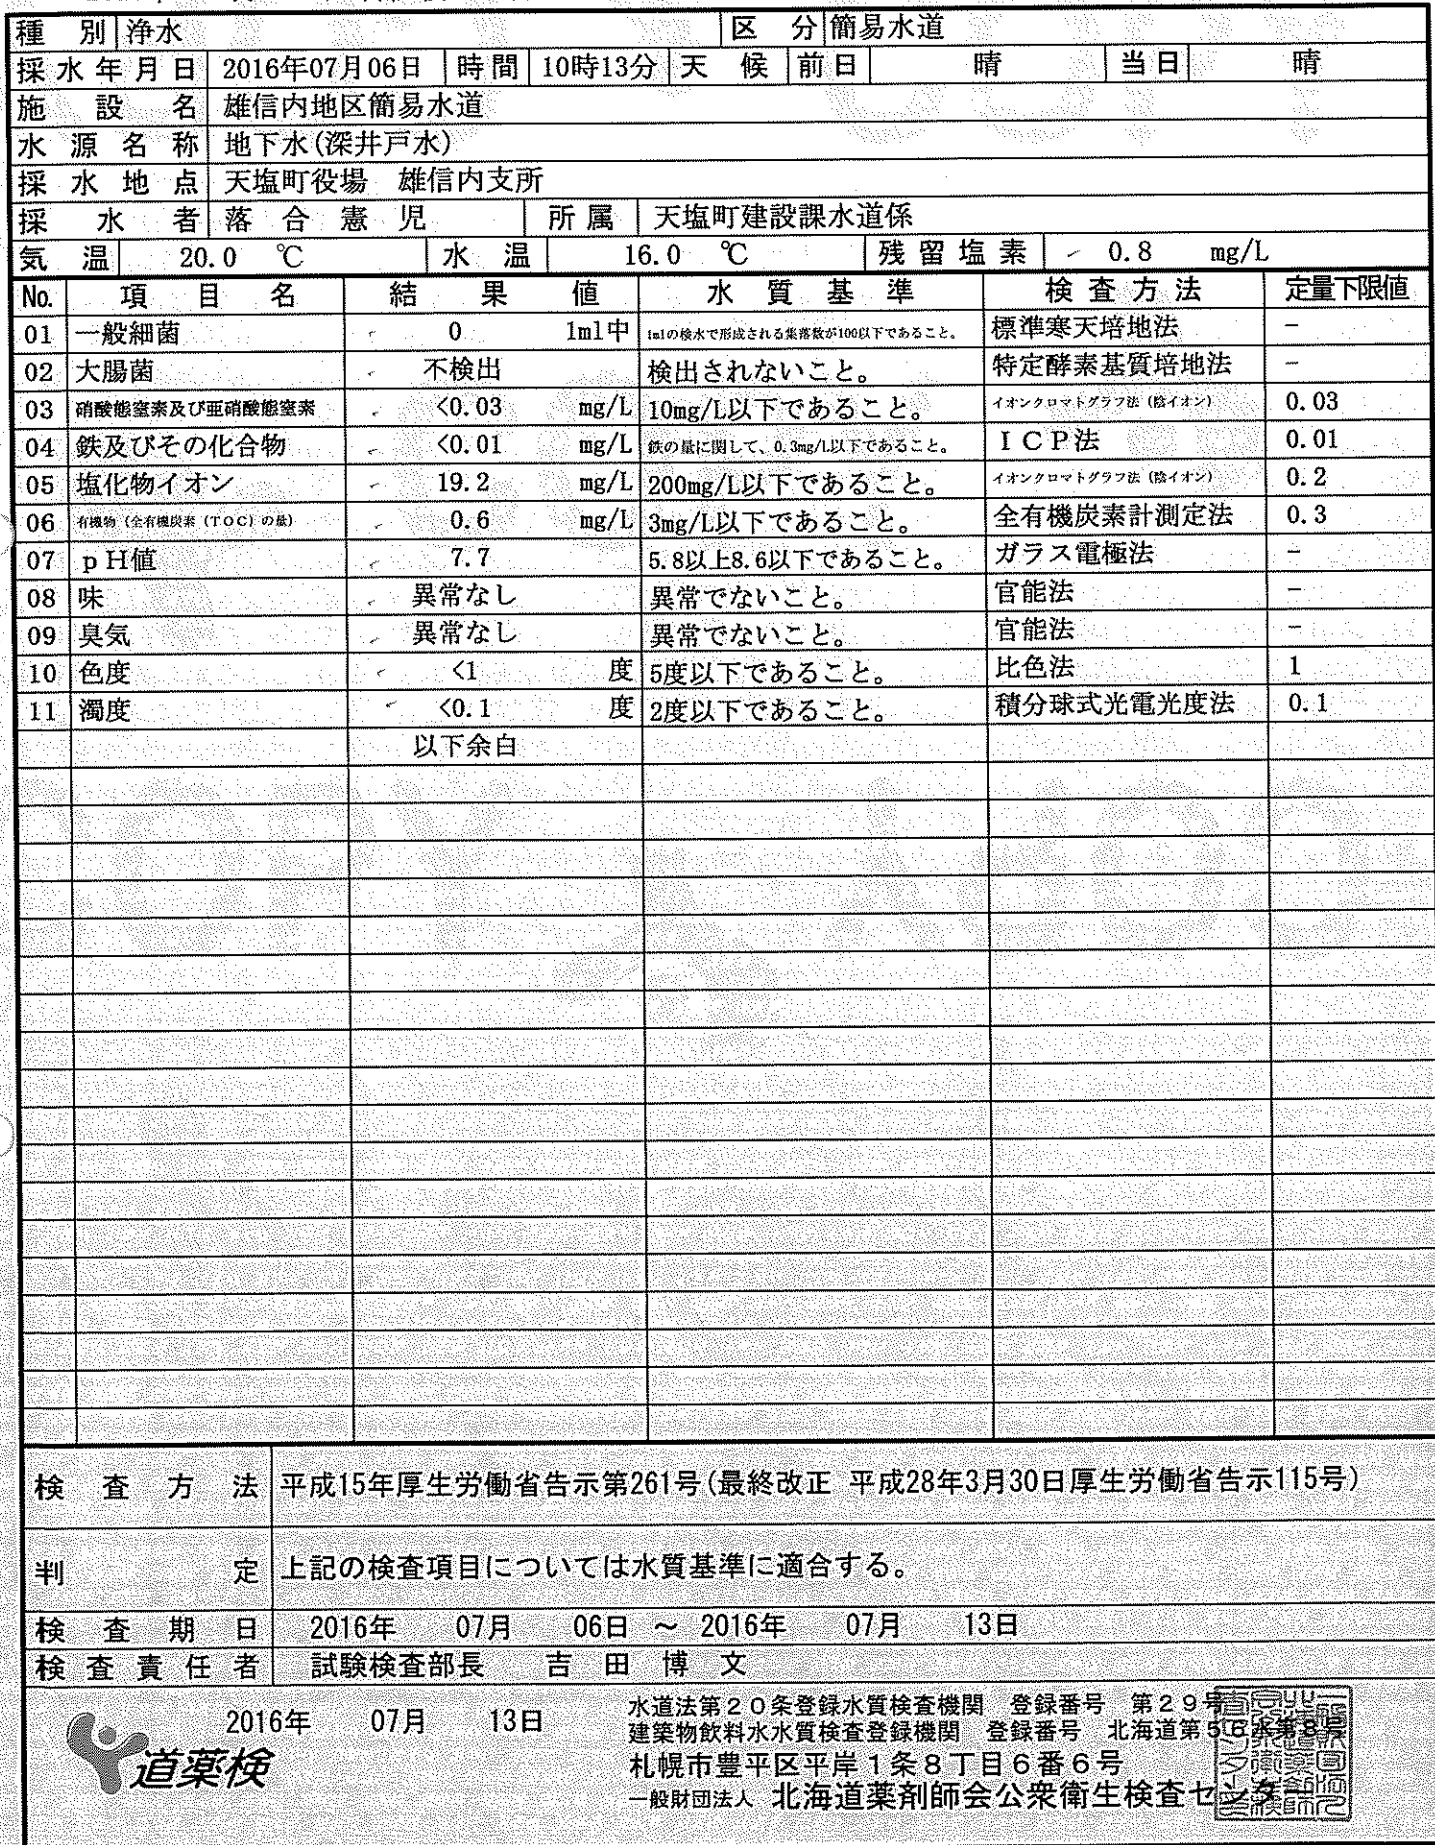 種 別 浄水 区 分 簡易水道
採水年月日 2016年07月06日 時間 10時13分 天 候 前日 晴 当日 晴
施 設 名 雄信内地区簡易水道
水 源 名 称 地下水(深井戸水)
採 水 地 点 天塩町役場 雄信内支所
採 水 者 落 合 憲 児 所属 天塩町建設課水道係
気 温 20.0 ℃ 水 温 16.0 ℃ 残留塩素 0.8 mg/L
No. 項 目 名 結 果 値 水 質 基 準 検査方法 定量下限値
01 一般細菌 0 1ml中 1mlの検水で形成される集落数が100以下であること。 標準寒天培地法 －
02 大腸菌 不検出 検出されないこと。 特定酵素基質培地法 －
03 硝酸態窒素及び亜硝酸態窒素 <0.03 mg/L 10mg/L以下であること。 イオンクロマトグラフ法（陰イオン） 0.03
04 鉄及びその化合物 <0.01 mg/L 鉄の量に関して、0.3mg/L以下であること。 ＩＣＰ法 0.01
05 塩化物イオン 19.2 mg/L 200mg/L以下であること。 イオンクロマトグラフ法（陰イオン） 0.2
06 有機物（全有機炭素（TOC）の量） 0.6 mg/L 3mg/L以下であること。 全有機炭素計測定法 0.3
07 ｐＨ値 7.7 5.8以上8.6以下であること。 ガラス電極法 －
08 味 異常なし 異常でないこと。 官能法 －
09 臭気 異常なし 異常でないこと。 官能法 －
10 色度 <1 度 5度以下であること。 比色法 1
11 濁度 <0.1 度 2度以下であること。 積分球式光電光度法 0.1
以下余白
検 査 方 法 平成15年厚生労働省告示第261号(最終改正 平成28年3月30日厚生労働省告示115号)
判 定 上記の検査項目については水質基準に適合する。
検 査 期 日 2016年 07月 06日 ～ 2016年 07月 13日
検査責任者 試験検査部長 吉 田 博 文
2016年 07月 13日
道薬検
水道法第２０条登録水質検査機関 登録番号 第２９号
建築物飲料水水質検査登録機関 登録番号 北海道第５６水第８号
札幌市豊平区平岸１条８丁目６番６号
一般財団法人 北海道薬剤師会公衆衛生検査センター